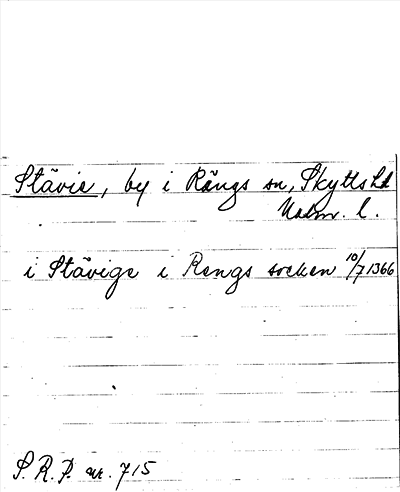 Stävie, by i Rängs sn, Skytts hd
Malm. l.
i Stävige i Rengs socken 10/7 1366
S. R. P. nr. 715